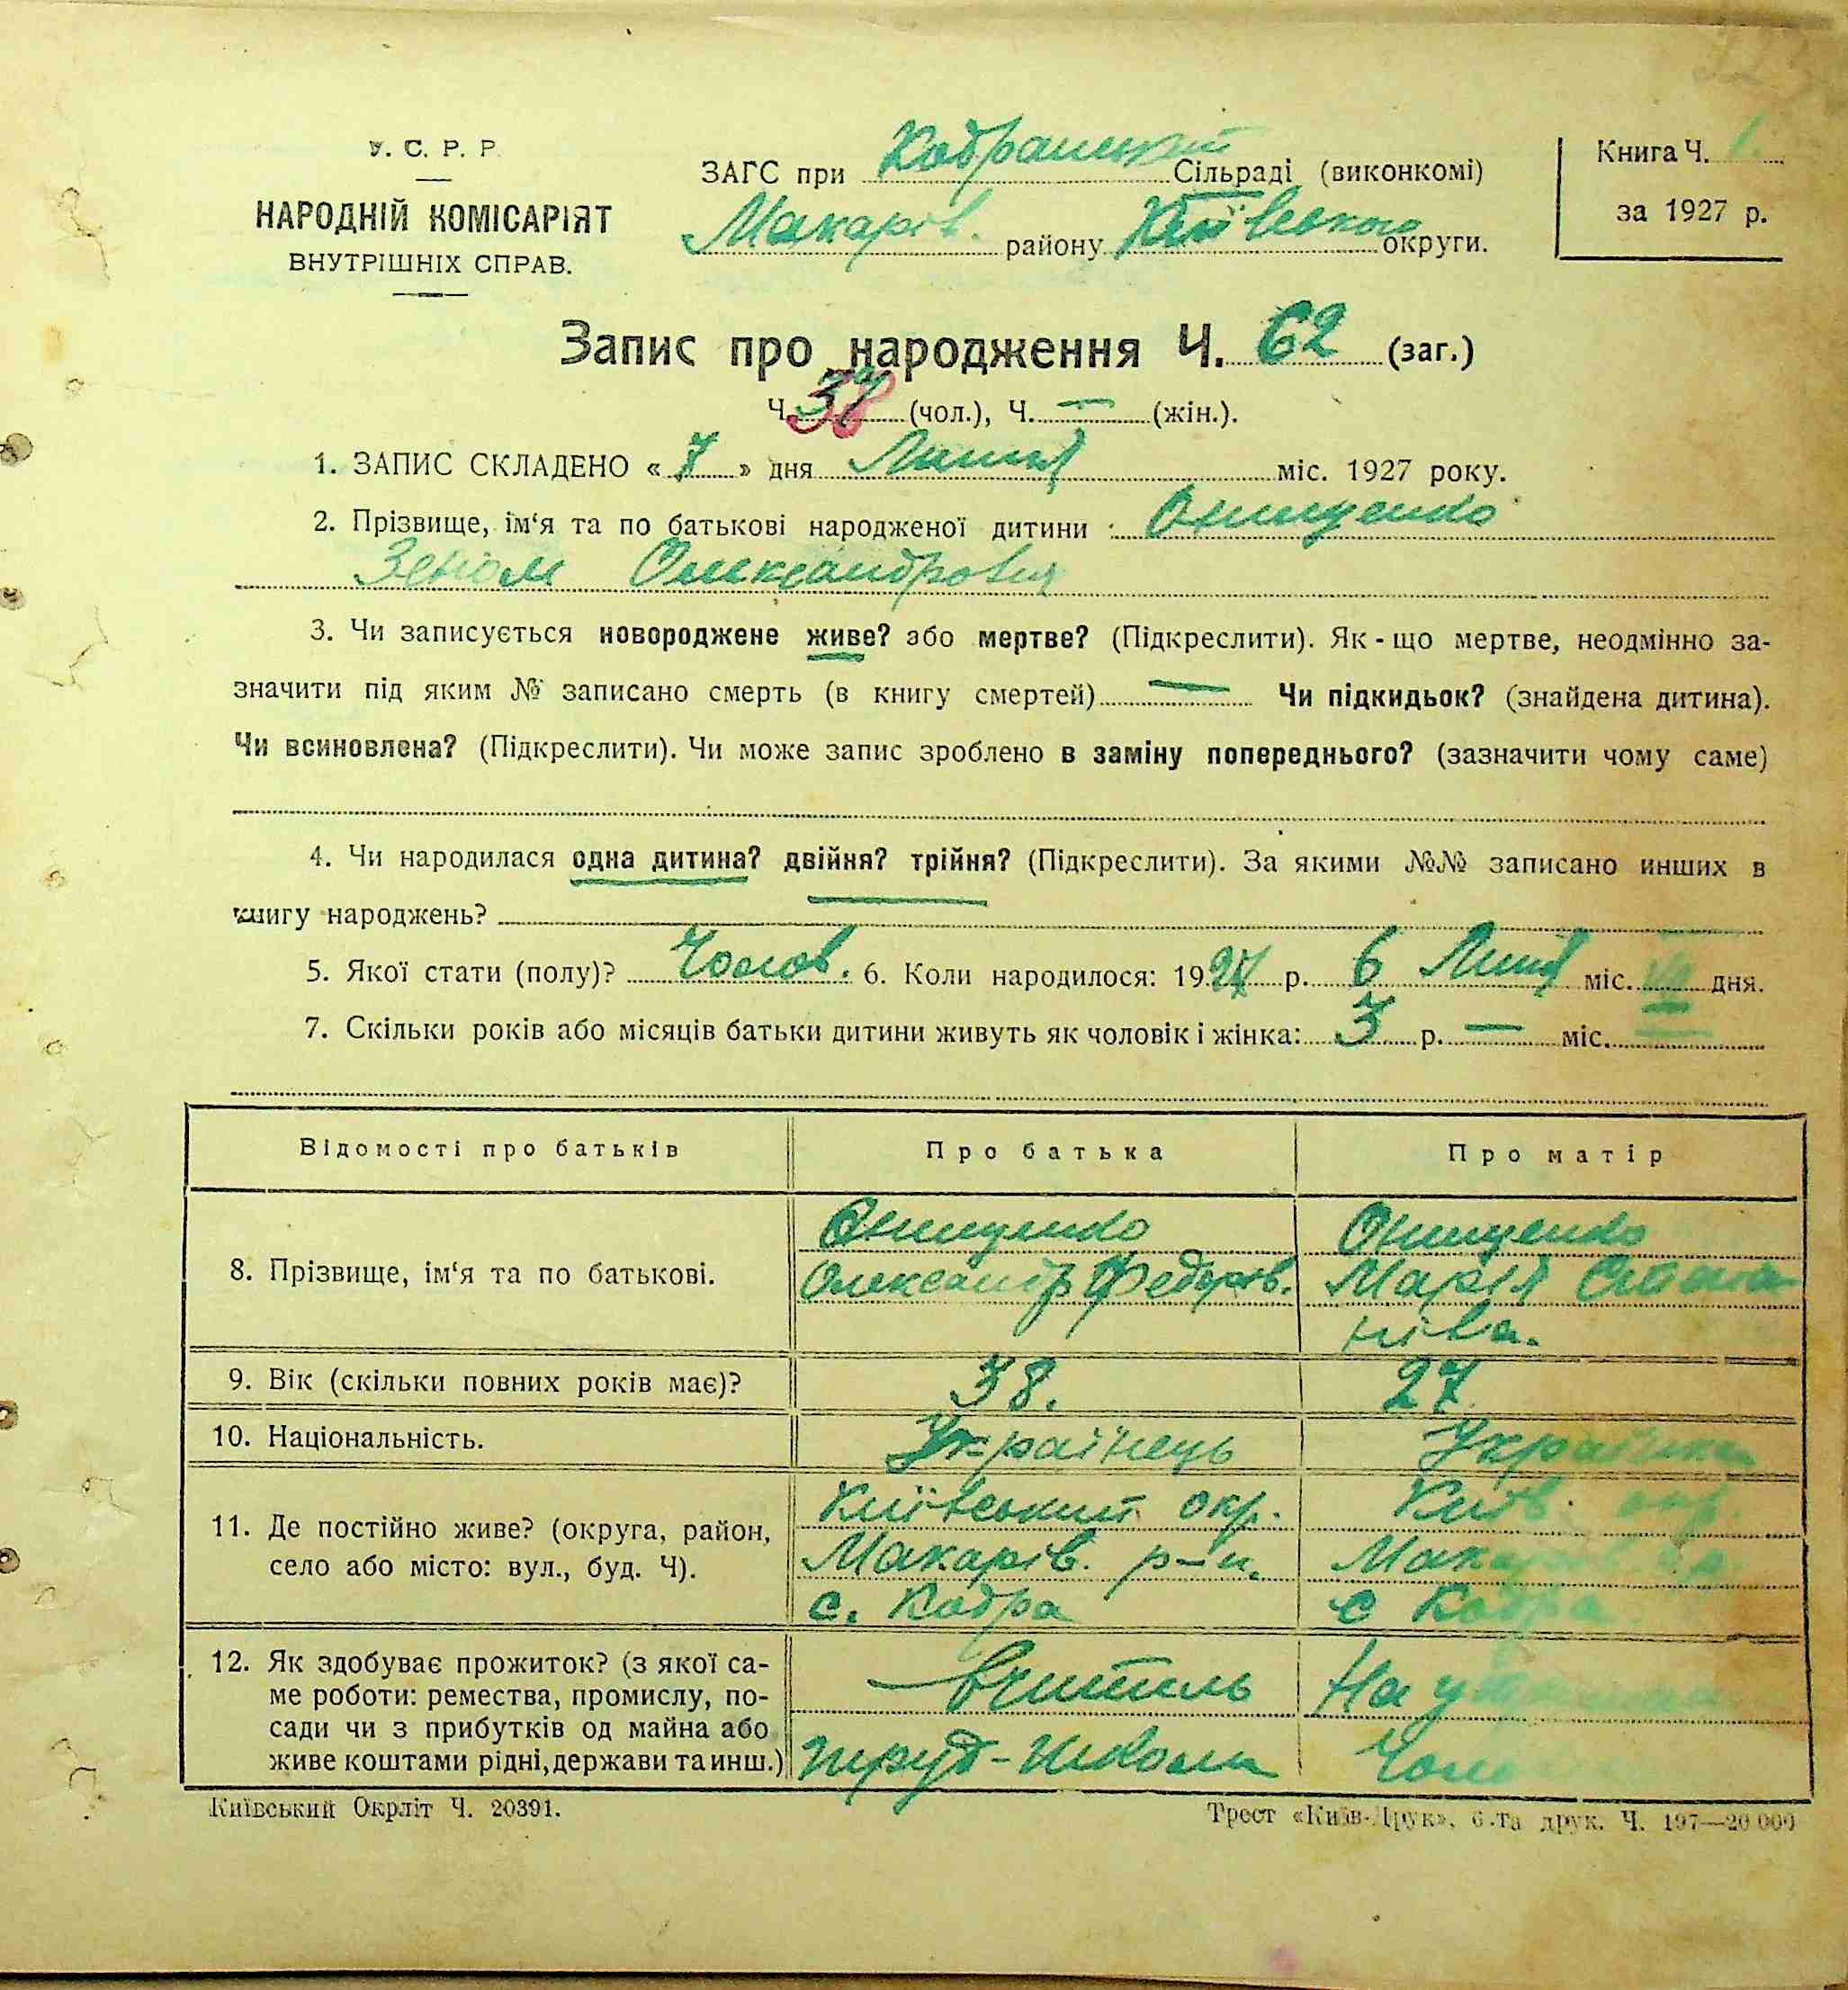 У. С. Р. Р.
НАРОДНІЙ КОМІСАРІЯТ
ВНУТРІШНІХ СПРАВ.
ЗАГС при Кодранській Сільраді (виконкомі)
Макарів. району Київського округи.
Книга Ч. 1
за 1927 р.
Запис про народження Ч. 62 (заг.)
Ч. 38 (чол.), Ч. — (жін.).
1. ЗАПИС СКЛАДЕНО « 7 » дня Липня міс. 1927 року.
2. Прізвище, ім‘я та по батькові народженої дитини : Онищенко
Олександрович
3. Чи записується новороджене живе? або мертве? (Підкреслити). Як-що мертве, неодмінно за-
значити під яким № записано смерть (в книгу смертей) — Чи підкидьок? (знайдена дитина).
Чи всиновлена? (Підкреслити). Чи може запис зроблено в заміну попереднього? (зазначити чому саме)
4. Чи народилася одна дитина? двійня? трійня? (Підкреслити). За якими №№ записано инших в
книгу народжень? —
5. Якої стати (полу)? Чолов. 6. Коли народилося: 1927 р. 6 Липня міс. VII дня.
7. Скільки років або місяців батьки дитини живуть як чоловік і жінка: 3 р. — міс.
Відомості про батьків Про батька Про матір
8. Прізвище, ім‘я та по батькові.
Онищенко
Олександр Федорів.
Онищенко
Марія Степа
ніва.
9. Вік (скільки повних років має)? 38. 27
10. Національність. Українець Українка
11. Де постійно живе? (округа, район,
село або місто: вул., буд. Ч).
Київський окр.
Макарів. р-н.
с. Кодра
Київ. окр.
Макарів.
с Кодра
12. Як здобуває прожиток? (з якої са-
ме роботи: ремества, промислу, по-
сади чи з прибутків од майна або
живе коштами рідні, держави та инш.)
— вчитель
труд-школи
На
Київський Окрліт Ч. 20391.
Трест «Київ-Друк», 6-та друк. Ч. 197—20 000